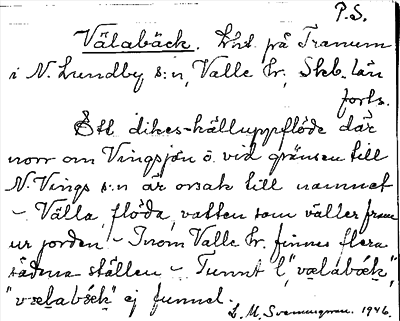 P.S.
Välabäck. Likt på Tranum
i N. Lundby s:n, Valle hr, Skb. län
forts.
Ett dikes-källuppflöde där
norr om Vingsjön ö. vid gränsen till
N. Vings s:n är orsak till namnet
– Välla, flöda, vatten som väller fram
ur jorden – Inom Valle hr. finnes flera
sådana ställen – Tunnt l, "vælabæk",
"vælabäck" ej funnet.
L. M. Svennungsson. 1946.